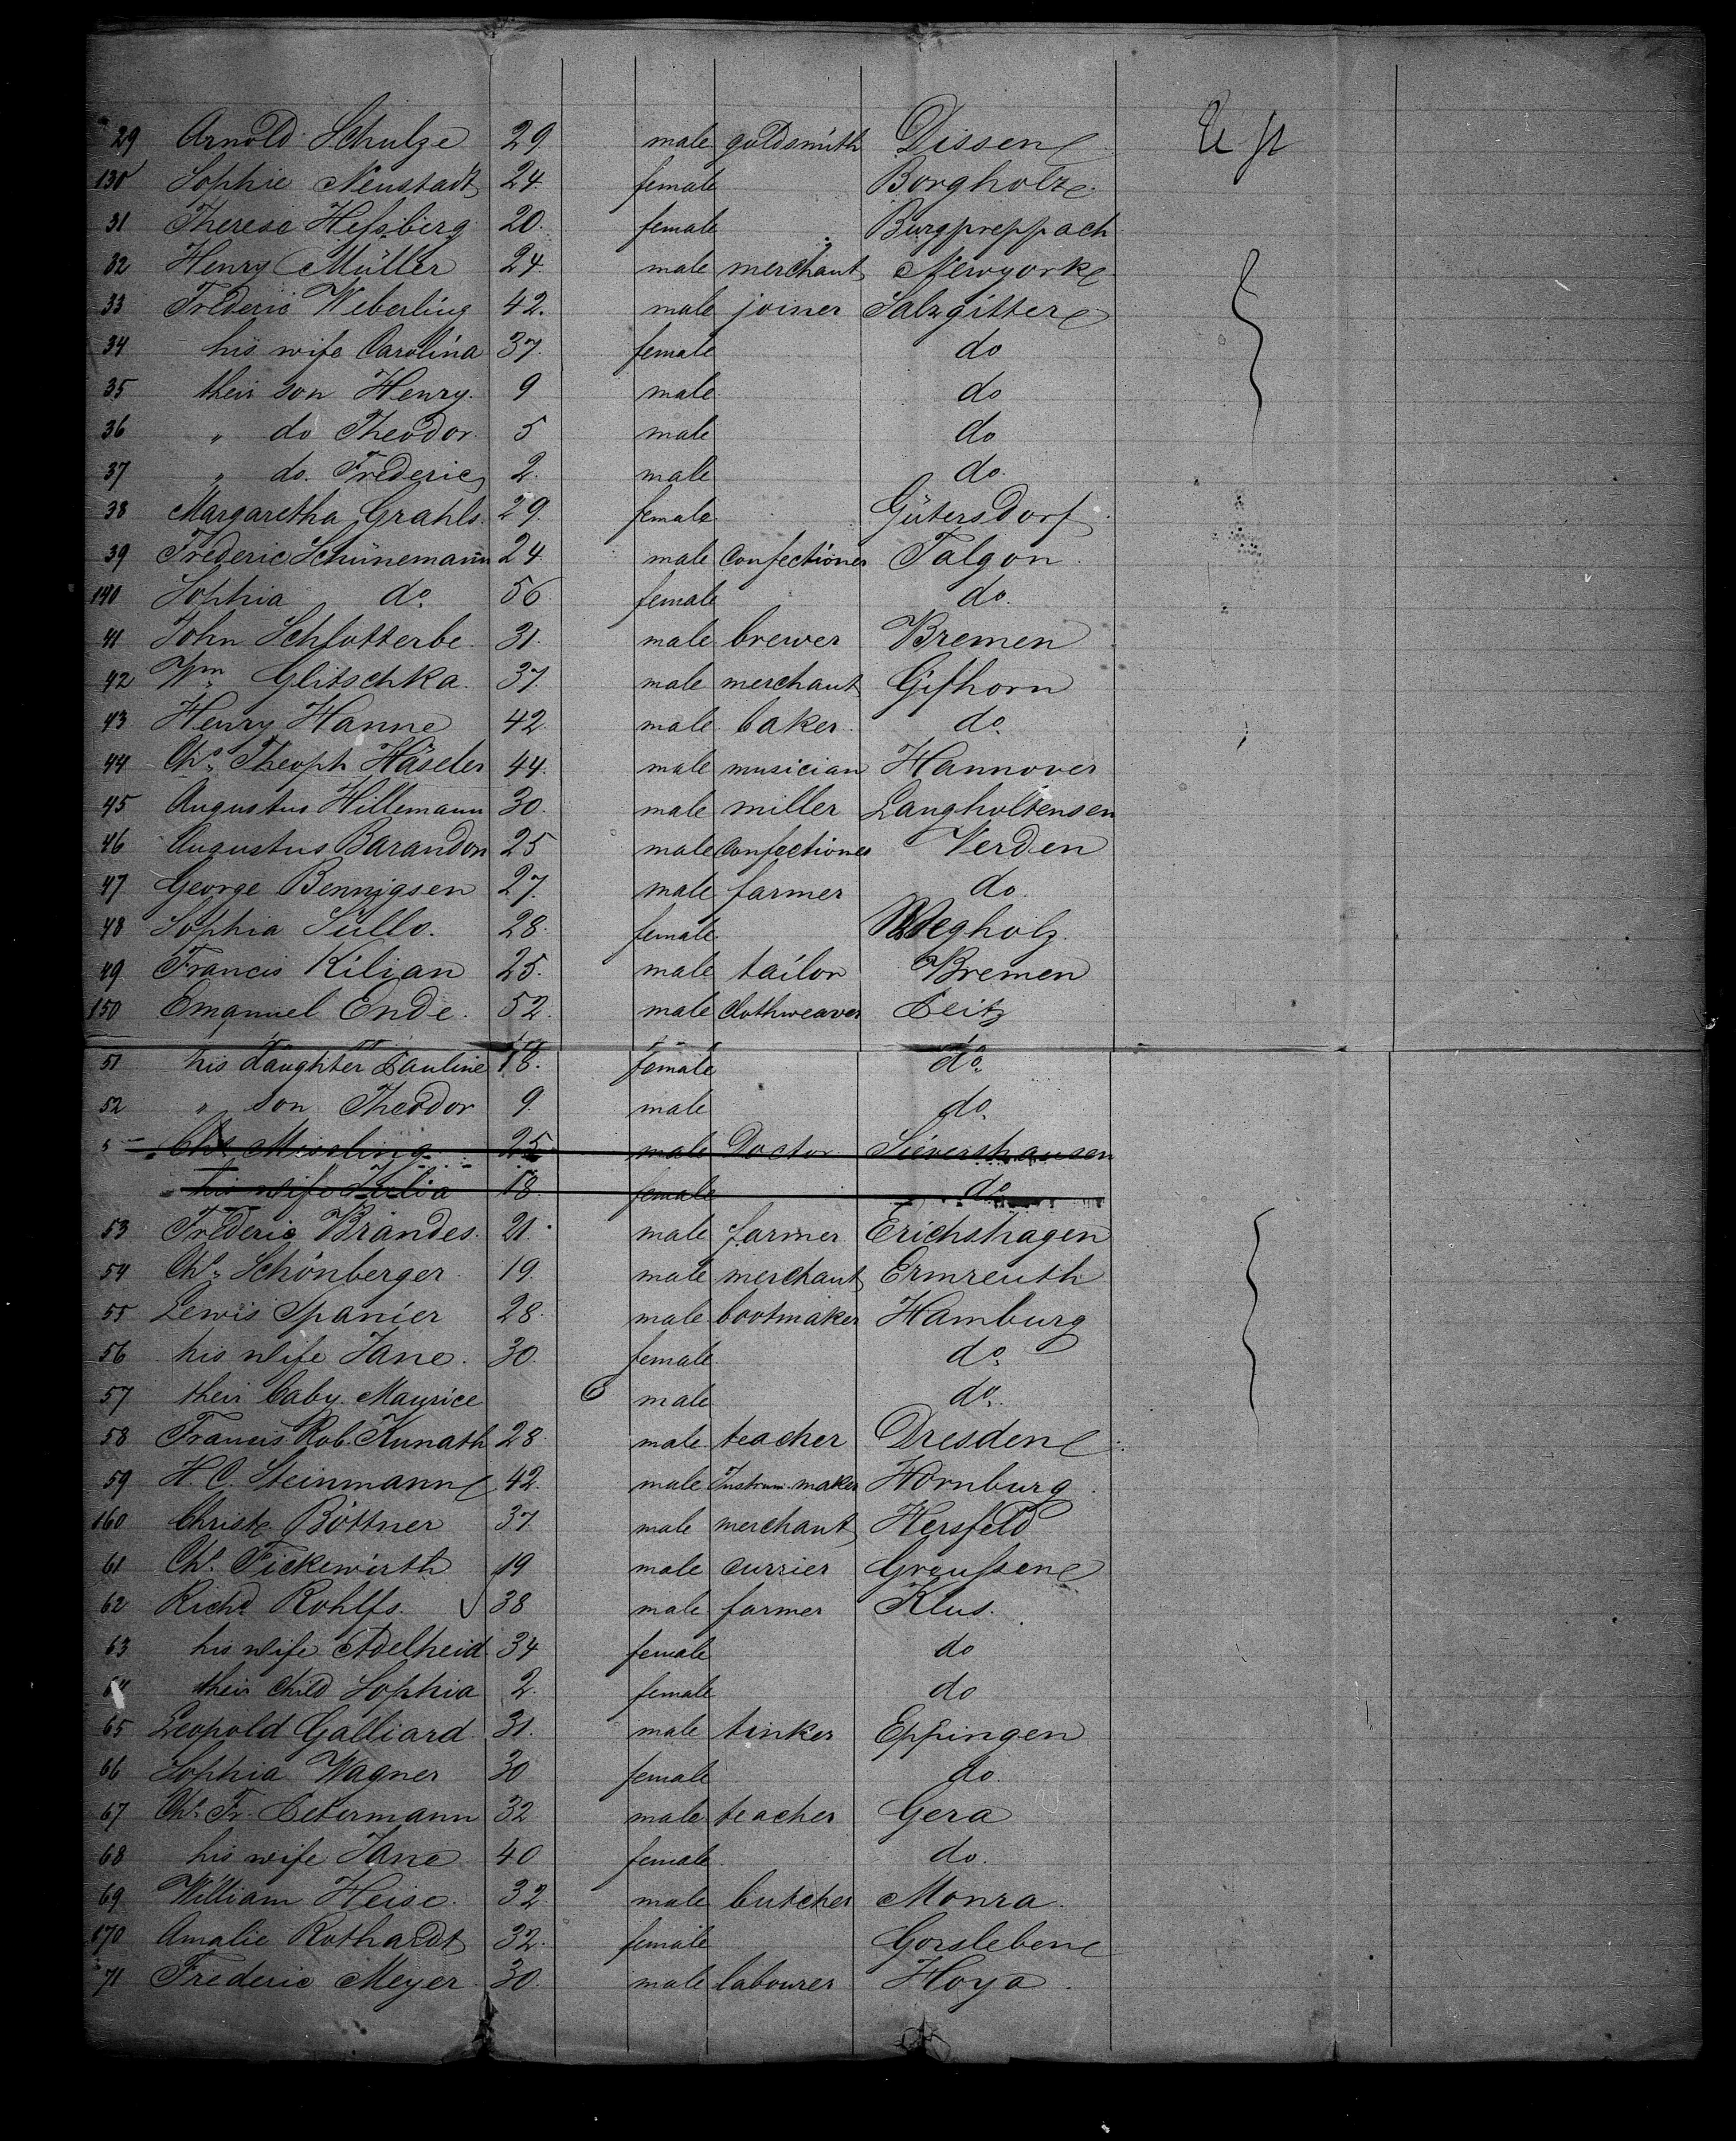 29 Arnold Schulze 29 male goldsmith Dissen
130 Sophie Neustadt 24 female Borgholz
31 Therese Hefsberg 20. female Burgpreppach
32 Henry Müller 24 male merchant Newyork
33 Frederic Weberling 42. male joiner Salzgitter
34 his wife Carolina 37. female do
35 their son Henry. 9 male do
36 " do Theodor. 5 male do
37 " do. Frederic 2. male do.
38 Margaretha Grahls. 29. female Gütersdorf
39 Frederic Schünemann 24 male confectioner Talgon
140 Sophia do. 56 female do.
41 John Schlotterbe 31. male brewer Bremen
42 Wm Glitschka. 37. male merchant Gifhorn
43 Henry Hanne 42 male baker do.
44 Chs. Theoph Häseler 44. male musician Hannover
45 Augustus Hillemann 30. male miller Langholtensen
46 Augustus Barandon 25 male confectioner Verden
47 George Bennigsen 27. male farmer do.
48 Sophia Süllo. 28. female Wegholz.
49 Francis Kilian 25. male tailor Bremen
150 Emanuel Ende. 52. male clothweaver Zeitz
51 his daughter Pauline 18. female do.
52 " son Theodor 9. male do.
Chs. 25 male Doctor Sievershausen
his wife Julia 18. female do
53 Frederic Brandes. 21. male farmer Erichshagen
54 Chs. Schönberger 19. male merchant Ermreuth
55 Lewis Spanier 28. male bootmaker Hamburg
56 his wife Jane. 30. female do.
57 their baby Maurice 6 male do.
58 Francis Rob. Kunath 28 male teacher Dresden
59 H. C. Steinmann 42. male Instrum. maker Hornburg
160 Christ. Böttner 37 male merchant Hersfeld
61 Chs. Fickewirth 19 male currier Greufsen
62 Richd Rohlfs. 38 male farmer Klus.
63 his wife Adelheid 34 female do
64 their child Sophia 2. female do
65 Leopold Galliard 31. male tinker Eppingen
66 Sophia Wagner 30 female do.
67 Chs. Fr. Zetermann 32 male teacher Gera
68 his wife Jane 40 female do.
69 William Heise. 32 male butcher Monra.
170 Amalie Rothardt 32. female Gorsleben
71 Frederic Meyer. 30. male labourer Hoya.